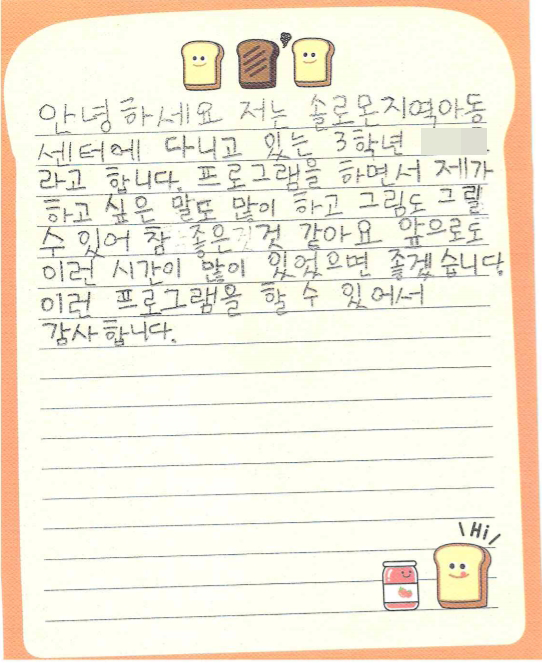 안녕하세요 저는 솔로몬지역아동
센터에 다니고 있는 3학년
라고 합니다. 프로그램을 하면서 제가
하고 싶은 말도 많이 하고 그림도 그릴
수 있어 참 좋은 것 같아요 앞으로도
이런 시간이 많이 있었으면 좋겠습니다
이런 프로그램을 할 수 있어서
감사합니다.
Hi